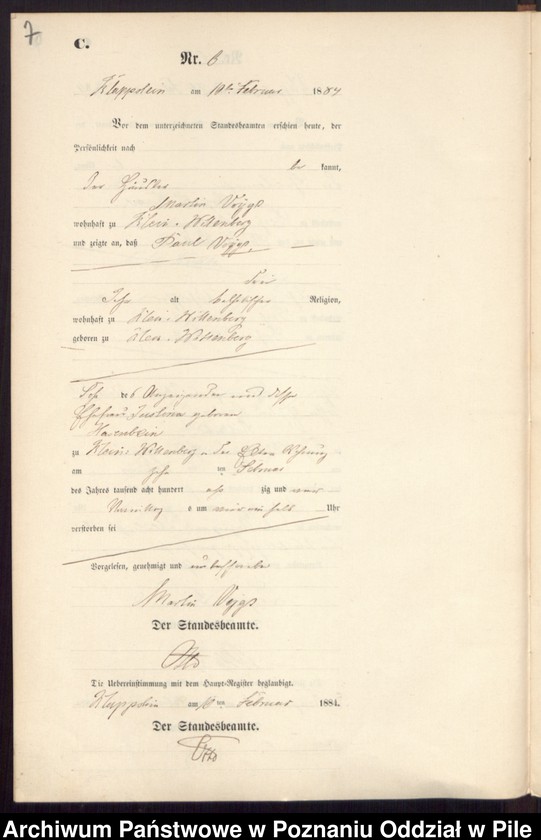 7
C.
Nr. 6
am 10ten Februar 1884
Vor dem unterzeichneten Standesbeamten erschien heute, der
Persönlichkeit nach
be kannt,
Der Händler
Martin
wohnhaft zu Klein-Wittenberg
und zeigte an, daß Paul
drei
Jahr alt katholischer Religion,
wohnhaft zu Klein-Wittenberg
geboren zu Klein-Wittenberg
Sohn des Anzeigenden und dessen
Ehefrau geboren
zu Klein-Wittenberg in der Wohnung
am ten Februar
des Jahres tausend acht hundert acht zig und vier
Vormittag s um Uhr
verstorben sei
Vorgelesen, genehmigt und
Martin
Der Standesbeamte.
Otto
Die Uebereinstimmung mit dem Haupt-Register beglaubigt.
am 10ten Februar 1884.
Der Standesbeamte.
Otto
Archiwum Państwowe w Poznaniu Oddział w Pile